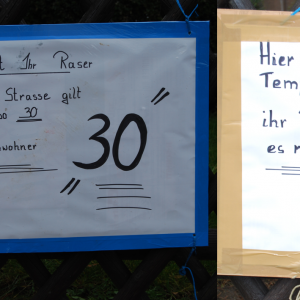 t Ihr Raser
Strasse gilt
so 30
wohner
" 30 "
Hier
Tem
ihr
es